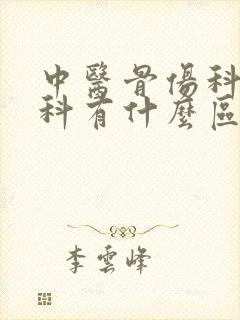 中醫骨傷科
科有什麼區
李雲峰